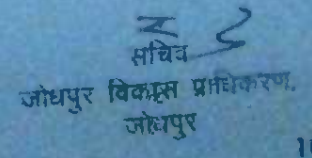 सचिव
जोधपुर विकास प्राधिकरण,
जोधपुर